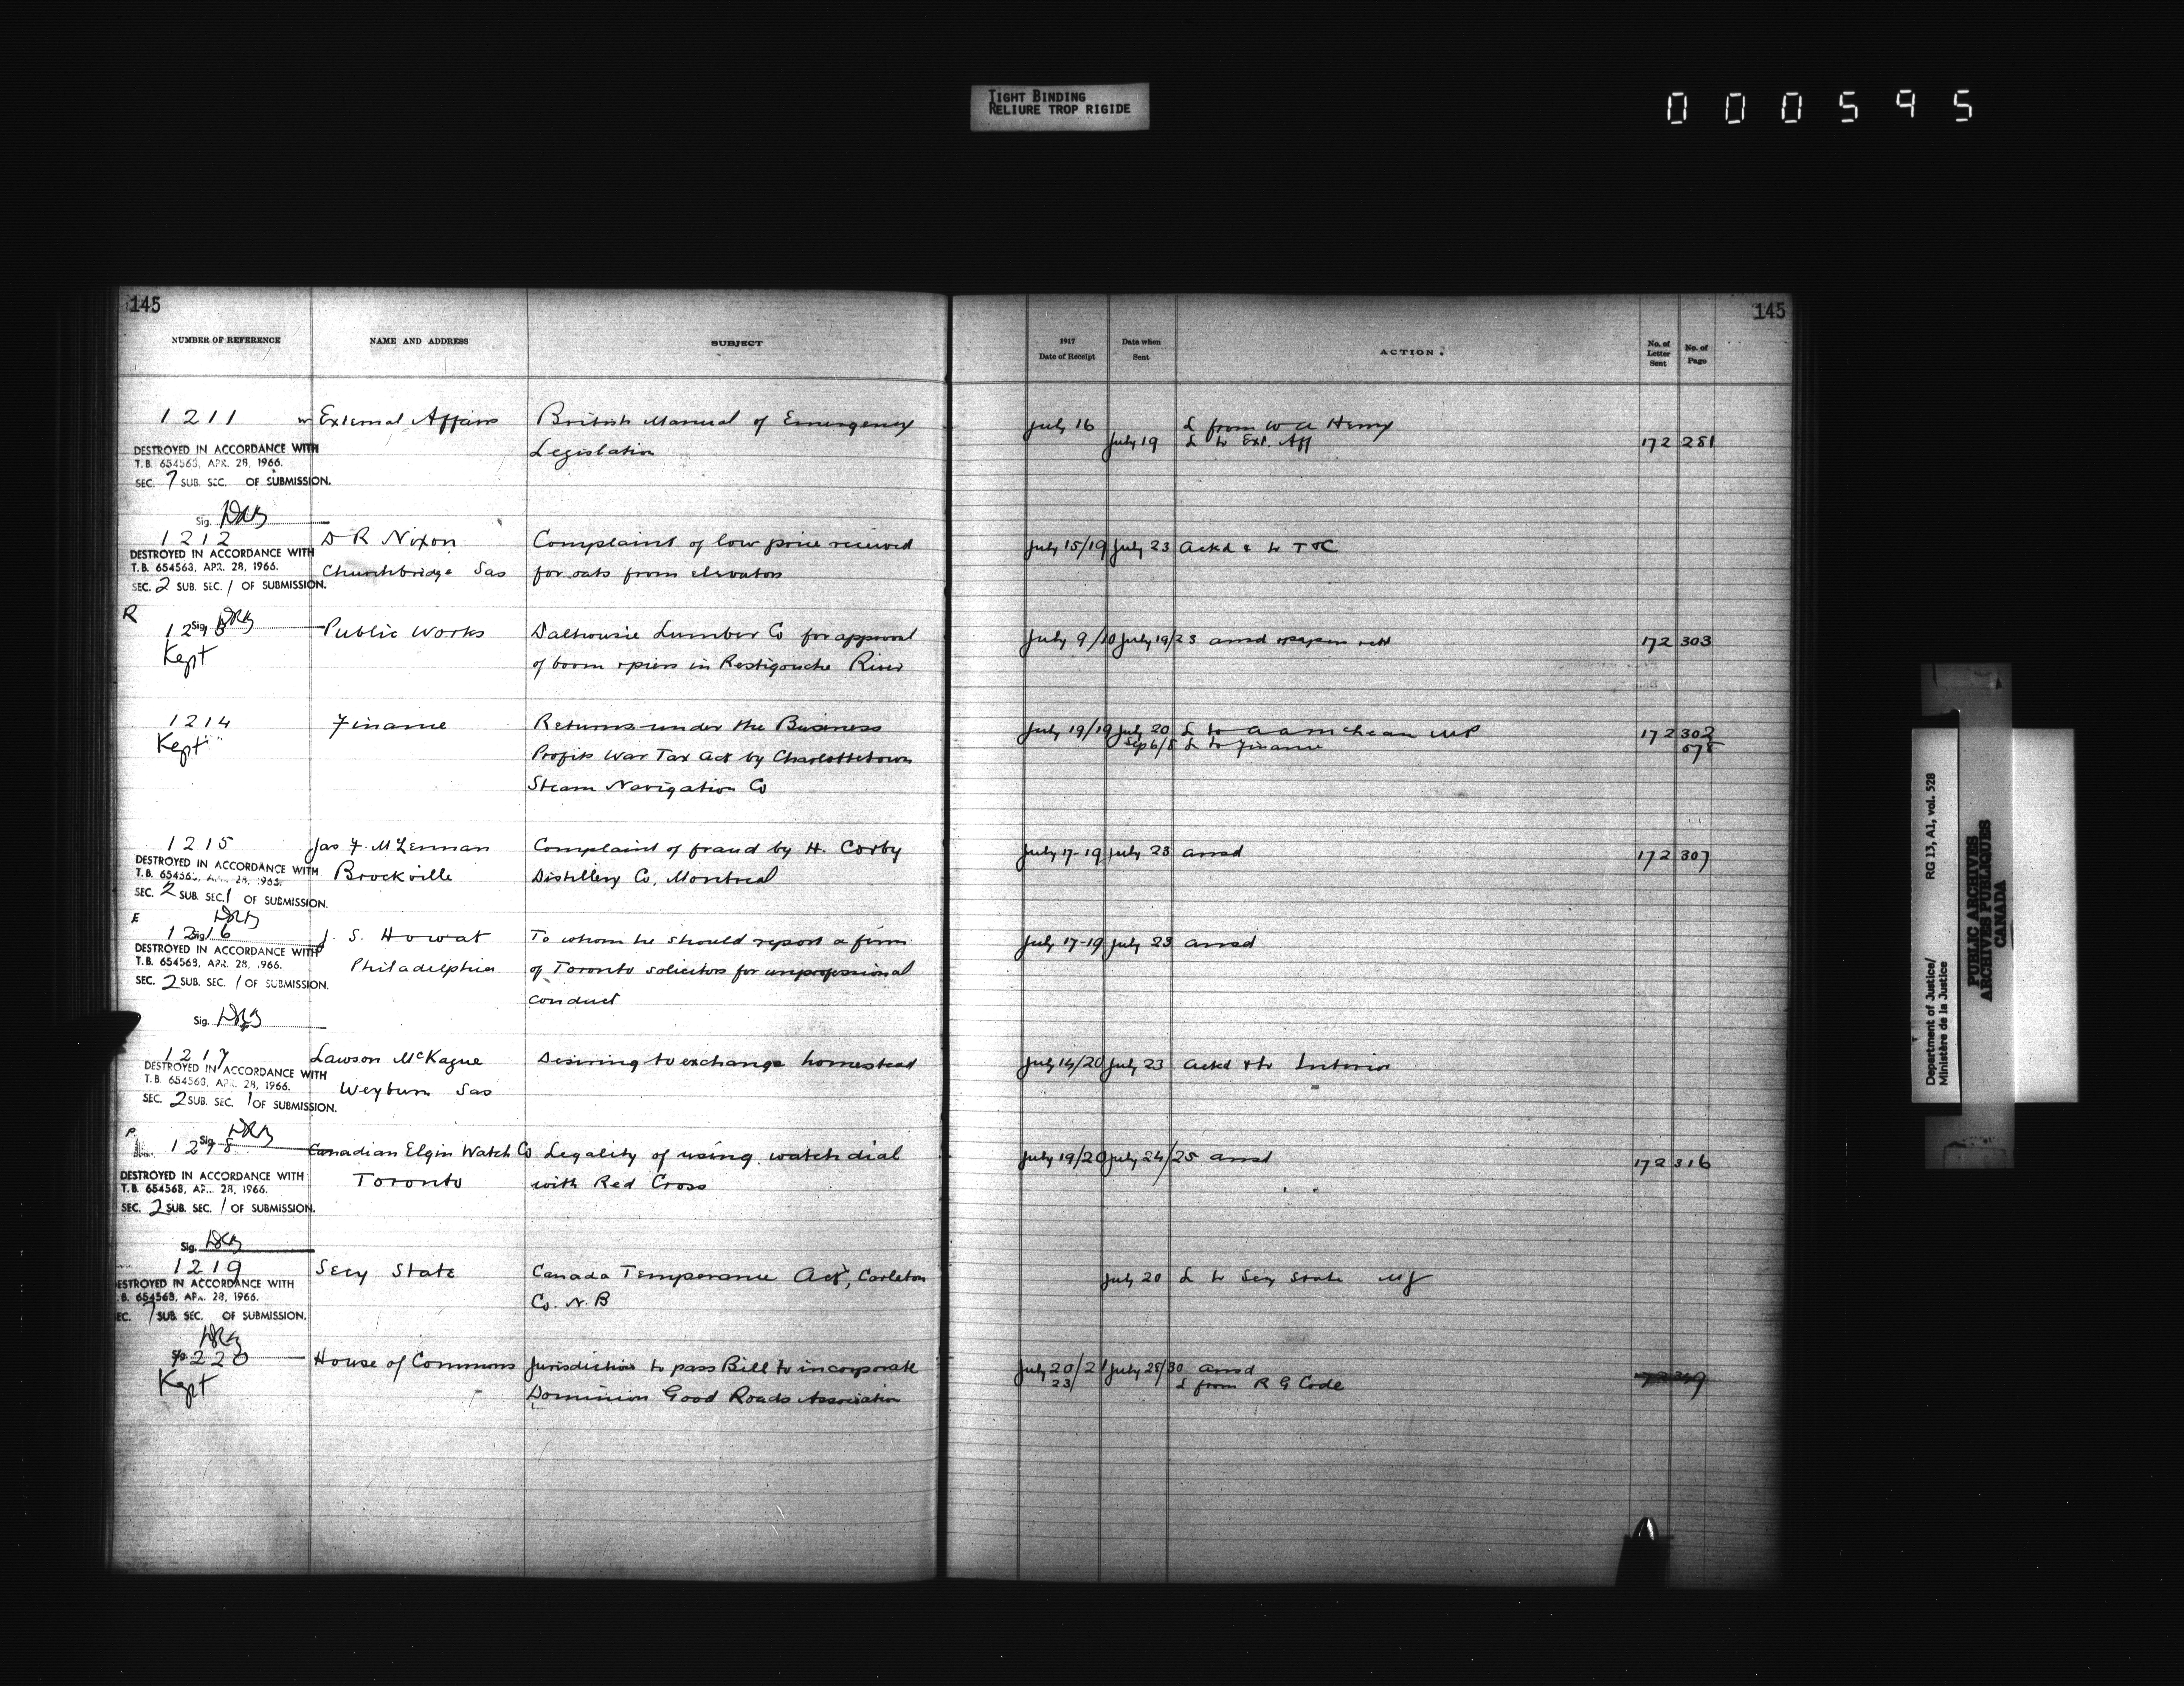 TIGHT BINDING
RELIURE TROP RIGIDE
000595
145
145
NUMBER OF REFERENCE NAME AND ADDRESS SUBJECT 1917 Date of Receipt Date when Sent ACTION. No. of Letter Sent No. of Page
1211 External Affairs British Manual of Emergency July 16 L from W A Henry
Legislation July 19 L to Ext. Aff 172 281
DESTROYED IN ACCORDANCE WITH
T.B. 654563, APR. 28, 1966.
SEC. 7 SUB. SEC. OF SUBMISSION.
Sig. DRB
1212 D R Nixon Complaint of low price received July 15/19 July 23 Ackd & to T&C
DESTROYED IN ACCORDANCE WITH
T.B. 654563, APR. 28, 1966.
Churchbridge Sas for oats from elevators
SEC. 2 SUB. SEC. 1 OF SUBMISSION.
R
Sig. DRB
1213 Public Works Dalhousie Lumber Co for approval July 9/10 July 19/23 ansd & papers retd 172 303
Kept of boom & piers in Restigouche River
1214 Finance Returns under the Business July 19/19 July 20 L to A A McLean MP 172 302
Kept Profits War Tax Act by Charlottetown Sep 6/8 L to Finance 578
Steam Navigation Co
1215 Jas F. McLennan Complaint of fraud by H. Corby July 17-19 July 23 ansd 172 307
DESTROYED IN ACCORDANCE WITH
T.B. 654563, APR. 28, 1966.
Brockville Distillery Co, Montreal
SEC. 2 SUB. SEC. 1 OF SUBMISSION.
E
Sig. DRB
1216 J. S. Howat To whom he should report a firm July 17-19 July 23 ansd
DESTROYED IN ACCORDANCE WITH
T.B. 654563, APR. 28, 1966.
Philadelphia of Toronto solicitors for unprofessional
SEC. 2 SUB. SEC. 1 OF SUBMISSION.
conduct
Sig. DRB
1217 Lawson McKague Desiring to exchange homestead July 14/20 July 23 ackd & to Interior
DESTROYED IN ACCORDANCE WITH
T.B. 654563, APR. 28, 1966.
Weyburn Sas
SEC. 2 SUB. SEC. 1 OF SUBMISSION.
P.
Sig. DRB
1218 Canadian Elgin Watch Co Legality of using watch dial July 19/20 July 24/25 ansd 172 316
DESTROYED IN ACCORDANCE WITH
T.B. 654563, APR. 28, 1966.
Toronto with Red Cross
SEC. 2 SUB. SEC. 1 OF SUBMISSION.
Sig. DRB
1219 Secy State Canada Temperance Act, Carleton July 20 L to Secy State MJ
DESTROYED IN ACCORDANCE WITH
T.B. 654563, APR. 28, 1966.
Co. N.B
SEC. 7 SUB. SEC. OF SUBMISSION.
DRB
1220 House of Commons Jurisdiction to pass Bill to incorporate July 20/21 July 28/30 ansd
Kept Dominion Good Roads Association 23/ L from R G Code
Department of Justice/
Ministère de la Justice
RG 13, A1, vol. 528
PUBLIC ARCHIVES
ARCHIVES PUBLIQUES
CANADA